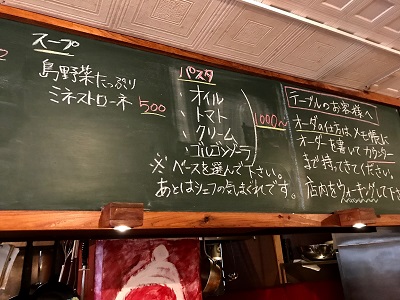 スープ
島野菜たっぷり
ミネストローネ 500
パスタ
オイル
トマト
クリーム
ゴルゴンゾーラ
1000~
※ベースを選んで下さい。
あとはシェフの気まぐれです。
テーブルのお客様へ
オーダーの仕方は、メモ帳に
オーダーを書いてカウンター
まで持ってきてください。
店内をウォーキングして下さ